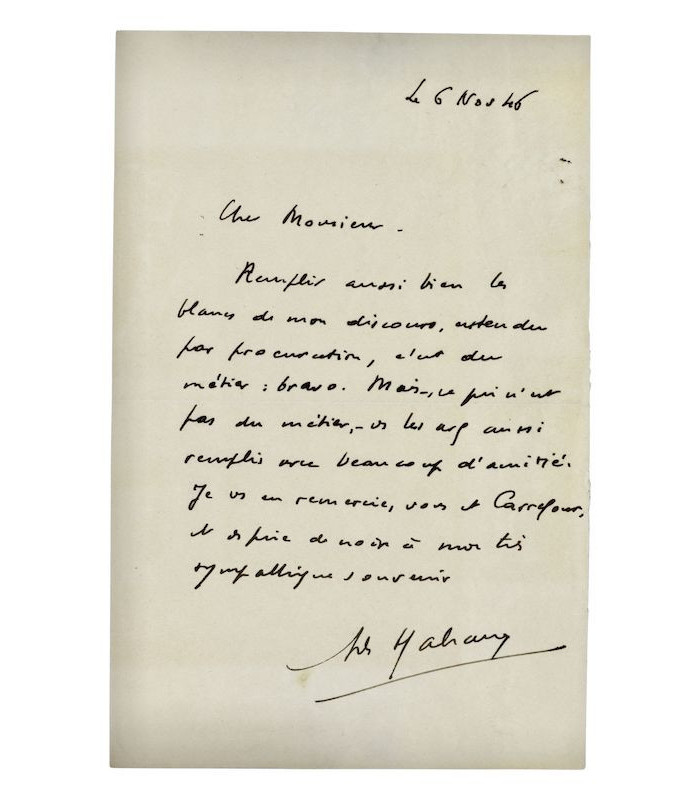 Le 6 Nov 46
Cher Monsieur.
Remplir aussi bien les
blancs de mon discours, entendu
par procuration, c'est du
métier : bravo. Mais, ce qui n'est
pas du métier, vs les avez aussi
remplis avec beaucoup d'amitié.
Je vs en remercie, vous et Carrefour,
et vs prie de croire à mon très
sympathique souvenir
Malraux